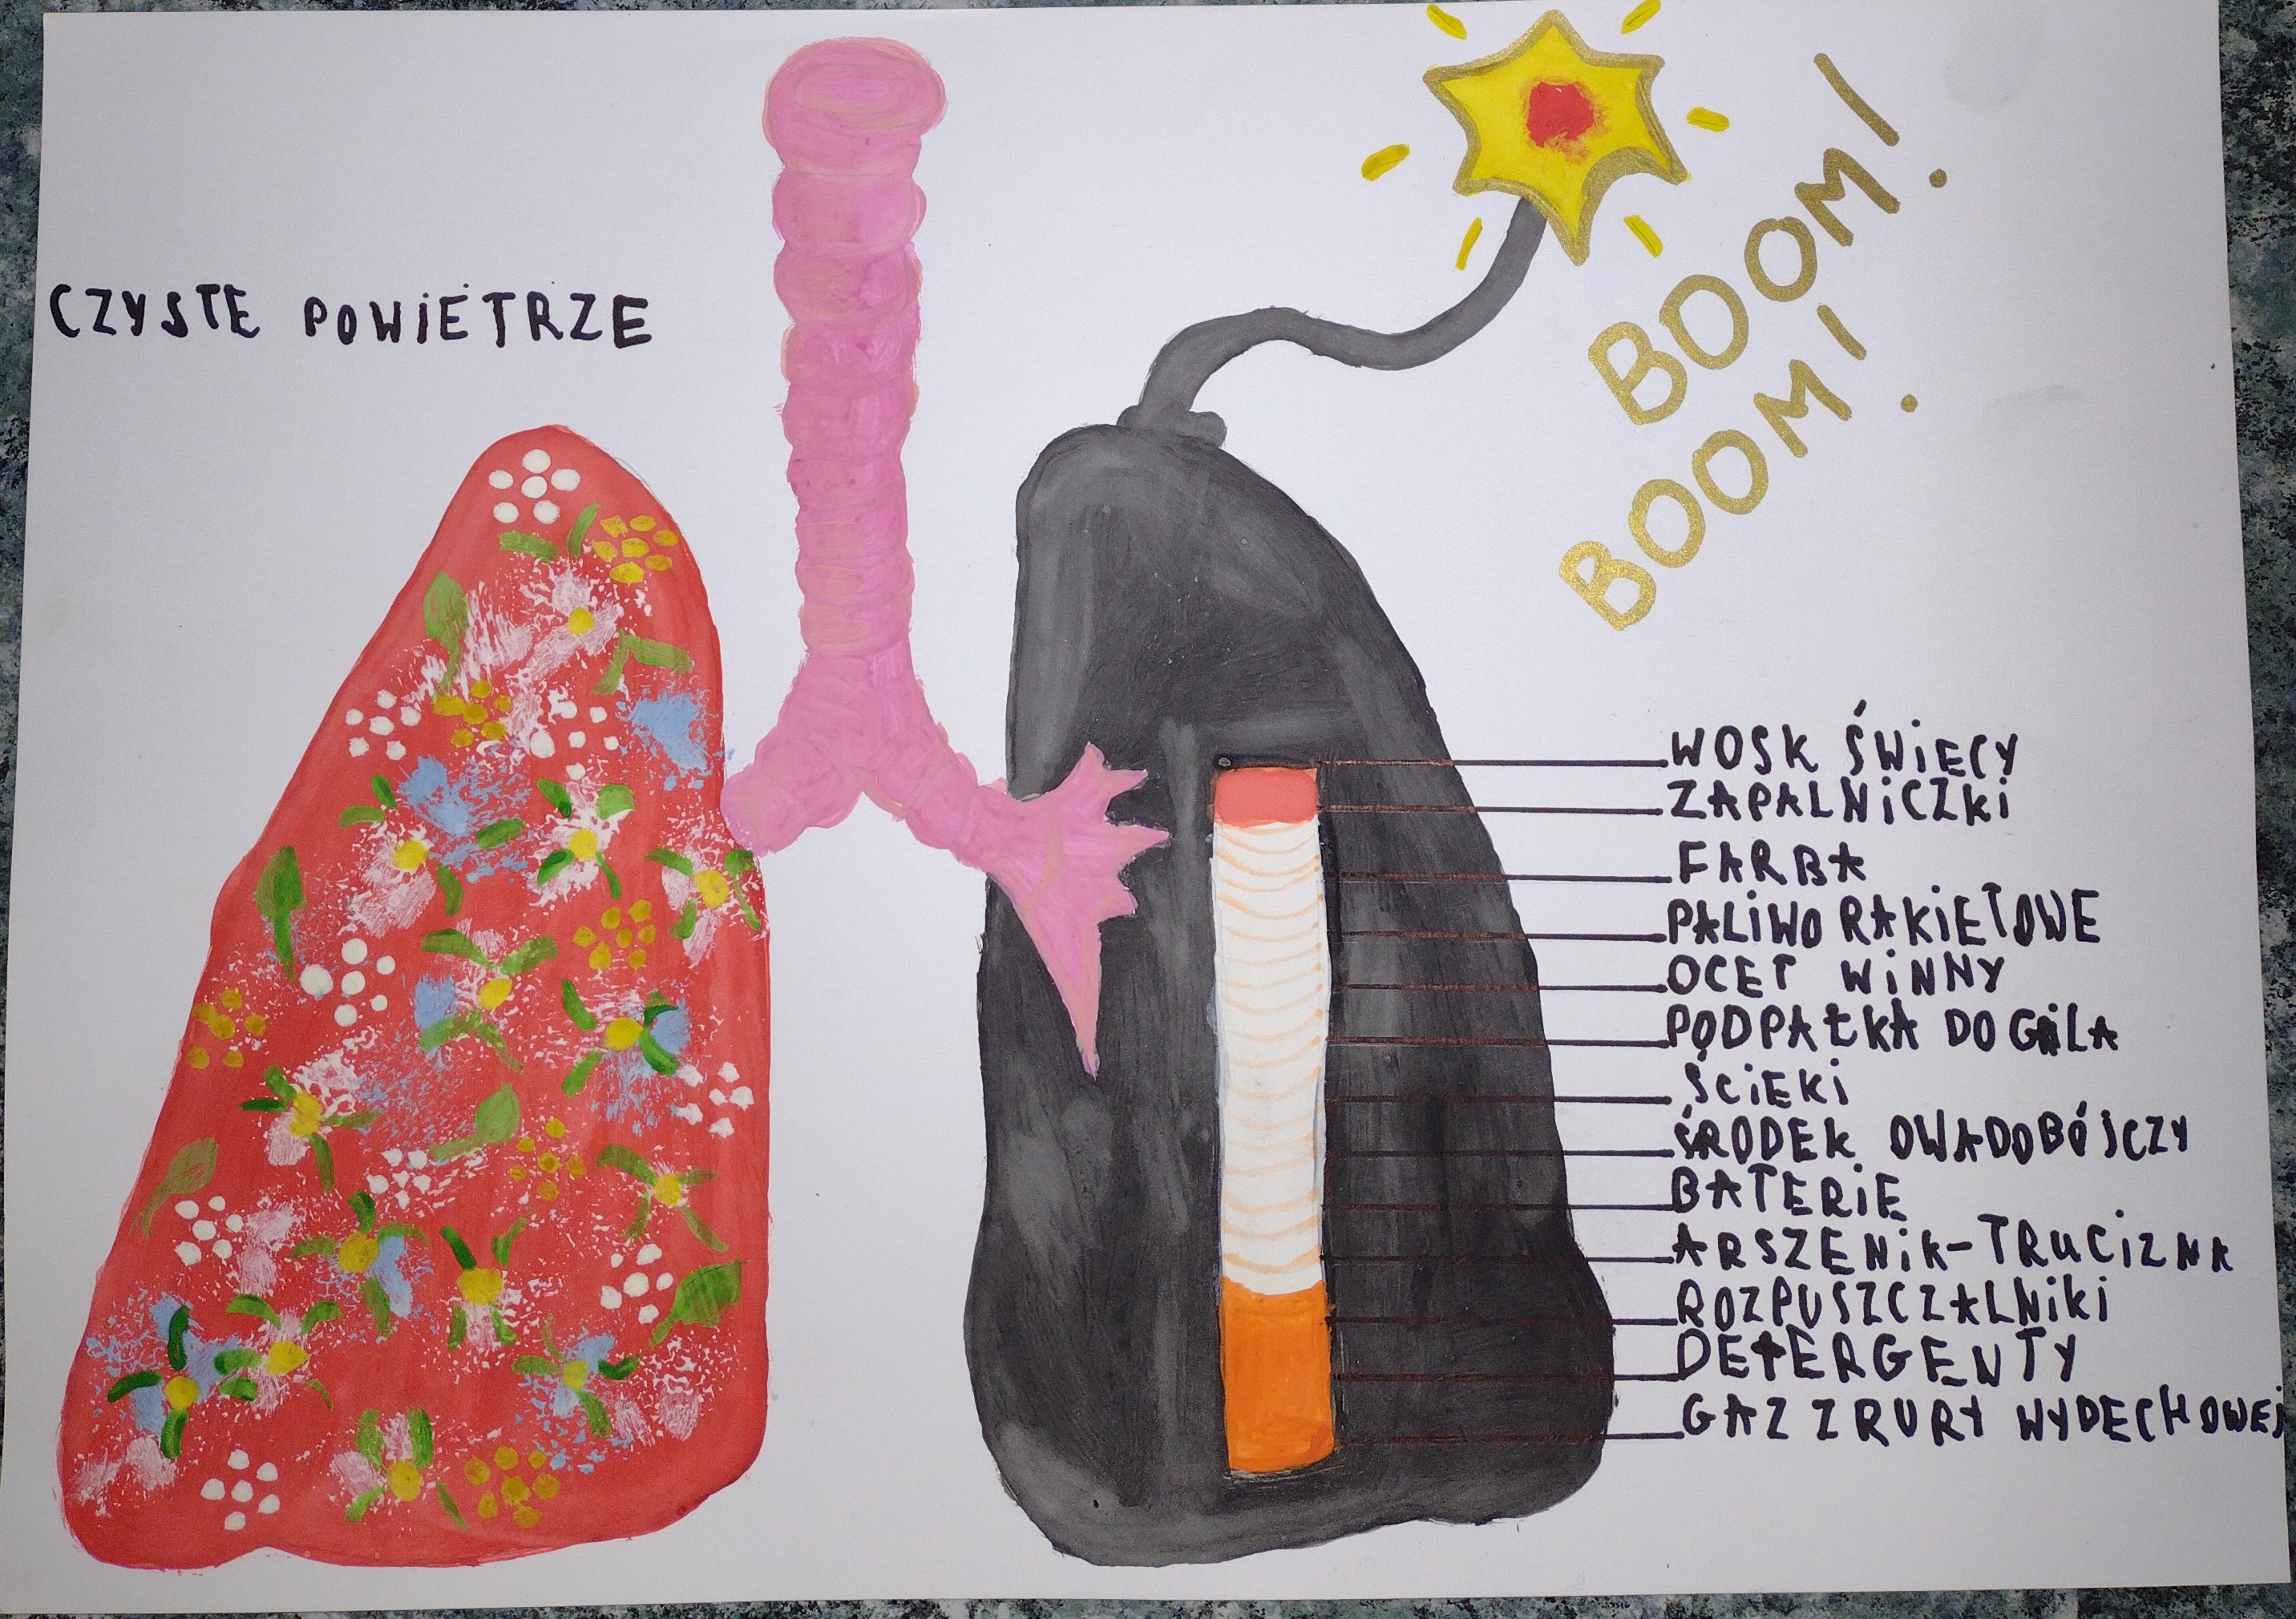 CZYSTE POWIETRZE
BOOM!
BOOM!
WOSK ŚWIECY
ZAPALNiCZKi
FARBA
PALiWO RAKiETOWE
OCET WiNNY
PODPAŁKA DO GRiLA
ŚCiEKi
ŚRODEK OWADOBÓJCZY
BATERiE
ARSZENiK-TRUCiZNA
ROZPUSZCZALNiKi
DETERGENTY
GAZ Z RURY WYDECHOWEJ